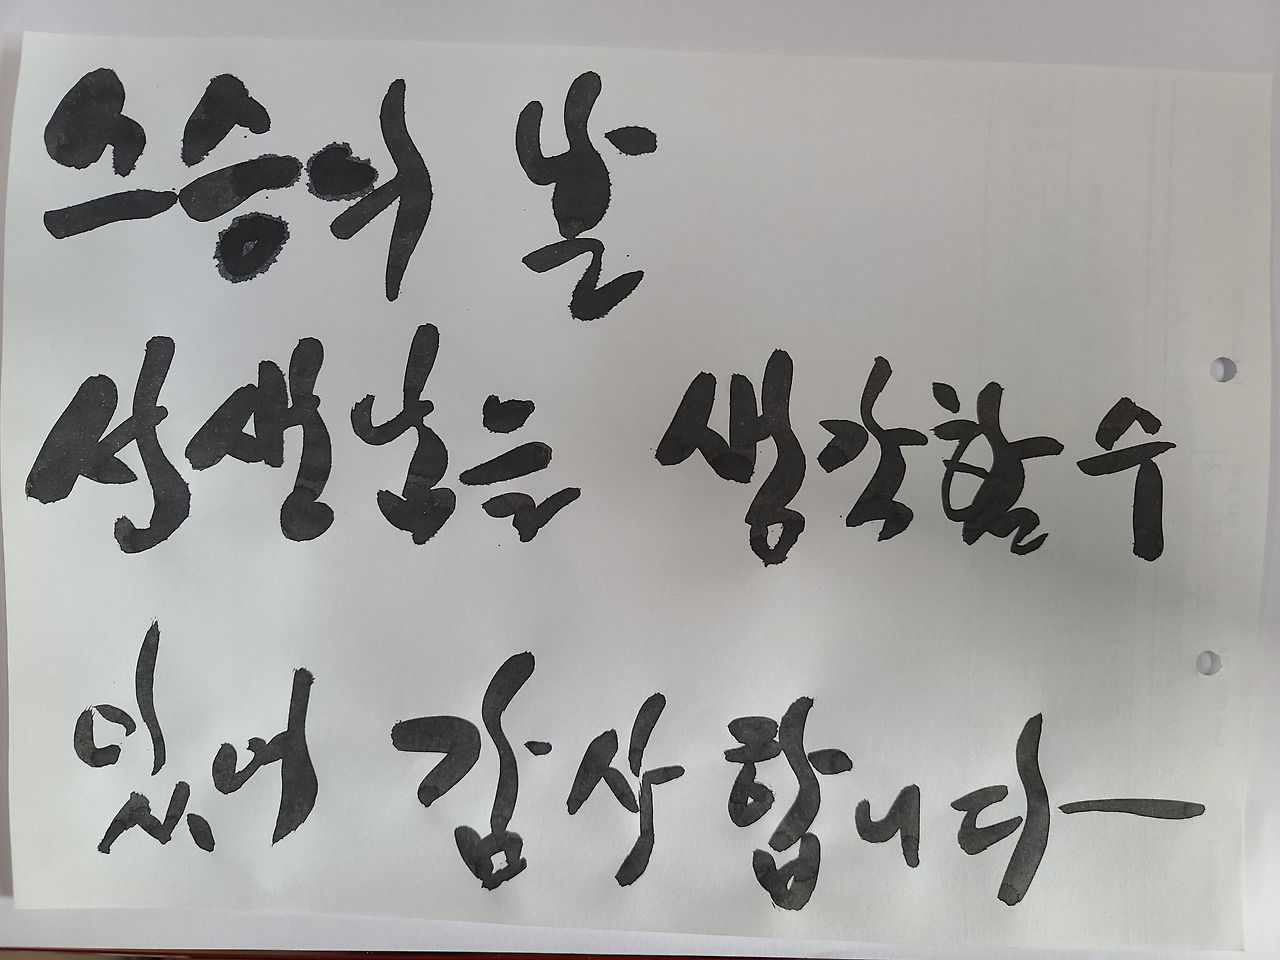 스승의 날
선생님을 생각할 수
있어 감사합니다